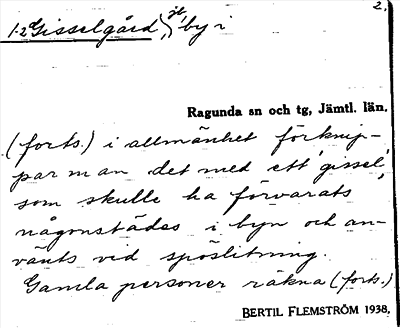 1-2 Gisselgård, jt, by i
2.
Ragunda sn och tg, Jämtl. län.
(forts.) i allmänhet förknip-
par man det med ett 'gissel',
som skulle ha förvarats
någonstädes i byn och an-
vänts vid spöslitning.
Gamla personer räkna (forts.)
BERTIL FLEMSTRÖM 1938.